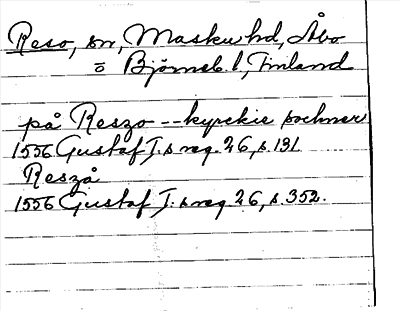 Reso, sn, Masku hd, Åbo
o Björneb. l, Finland
på Reszo -- kyrckie sochner
1556 Gustaf I:s reg. 26, s. 131.
Reszå
1556 Gustaf I:s reg. 26, s. 352.